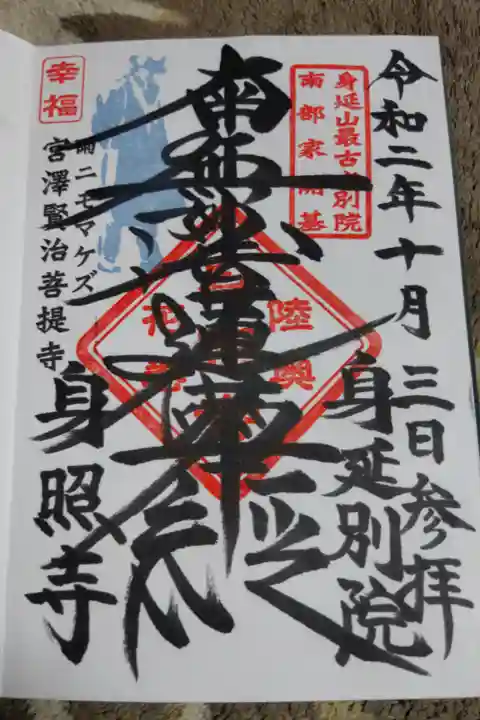 令和二年十月三日参拝
身延山最古の別院
南部家開基
身延別院
南無妙法蓮華経
陸奥
幸福
雨ニモマケズ
宮澤賢治菩提寺
身照寺